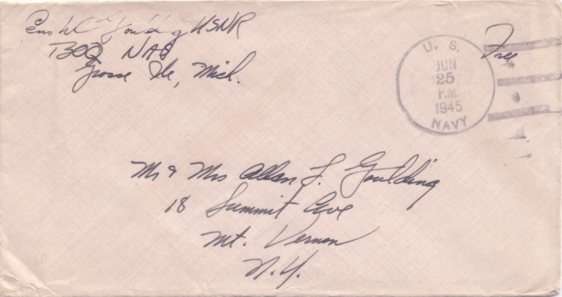 Ens W Goulding USNR
BOQ NAS
Grosse Ile, Mich.
Free
U. S.
JUN
25
P.M.
1945
NAVY
Mr & Mrs Allan F. Goulding
18 Summit Ave
Mt. Vernon
N.Y.